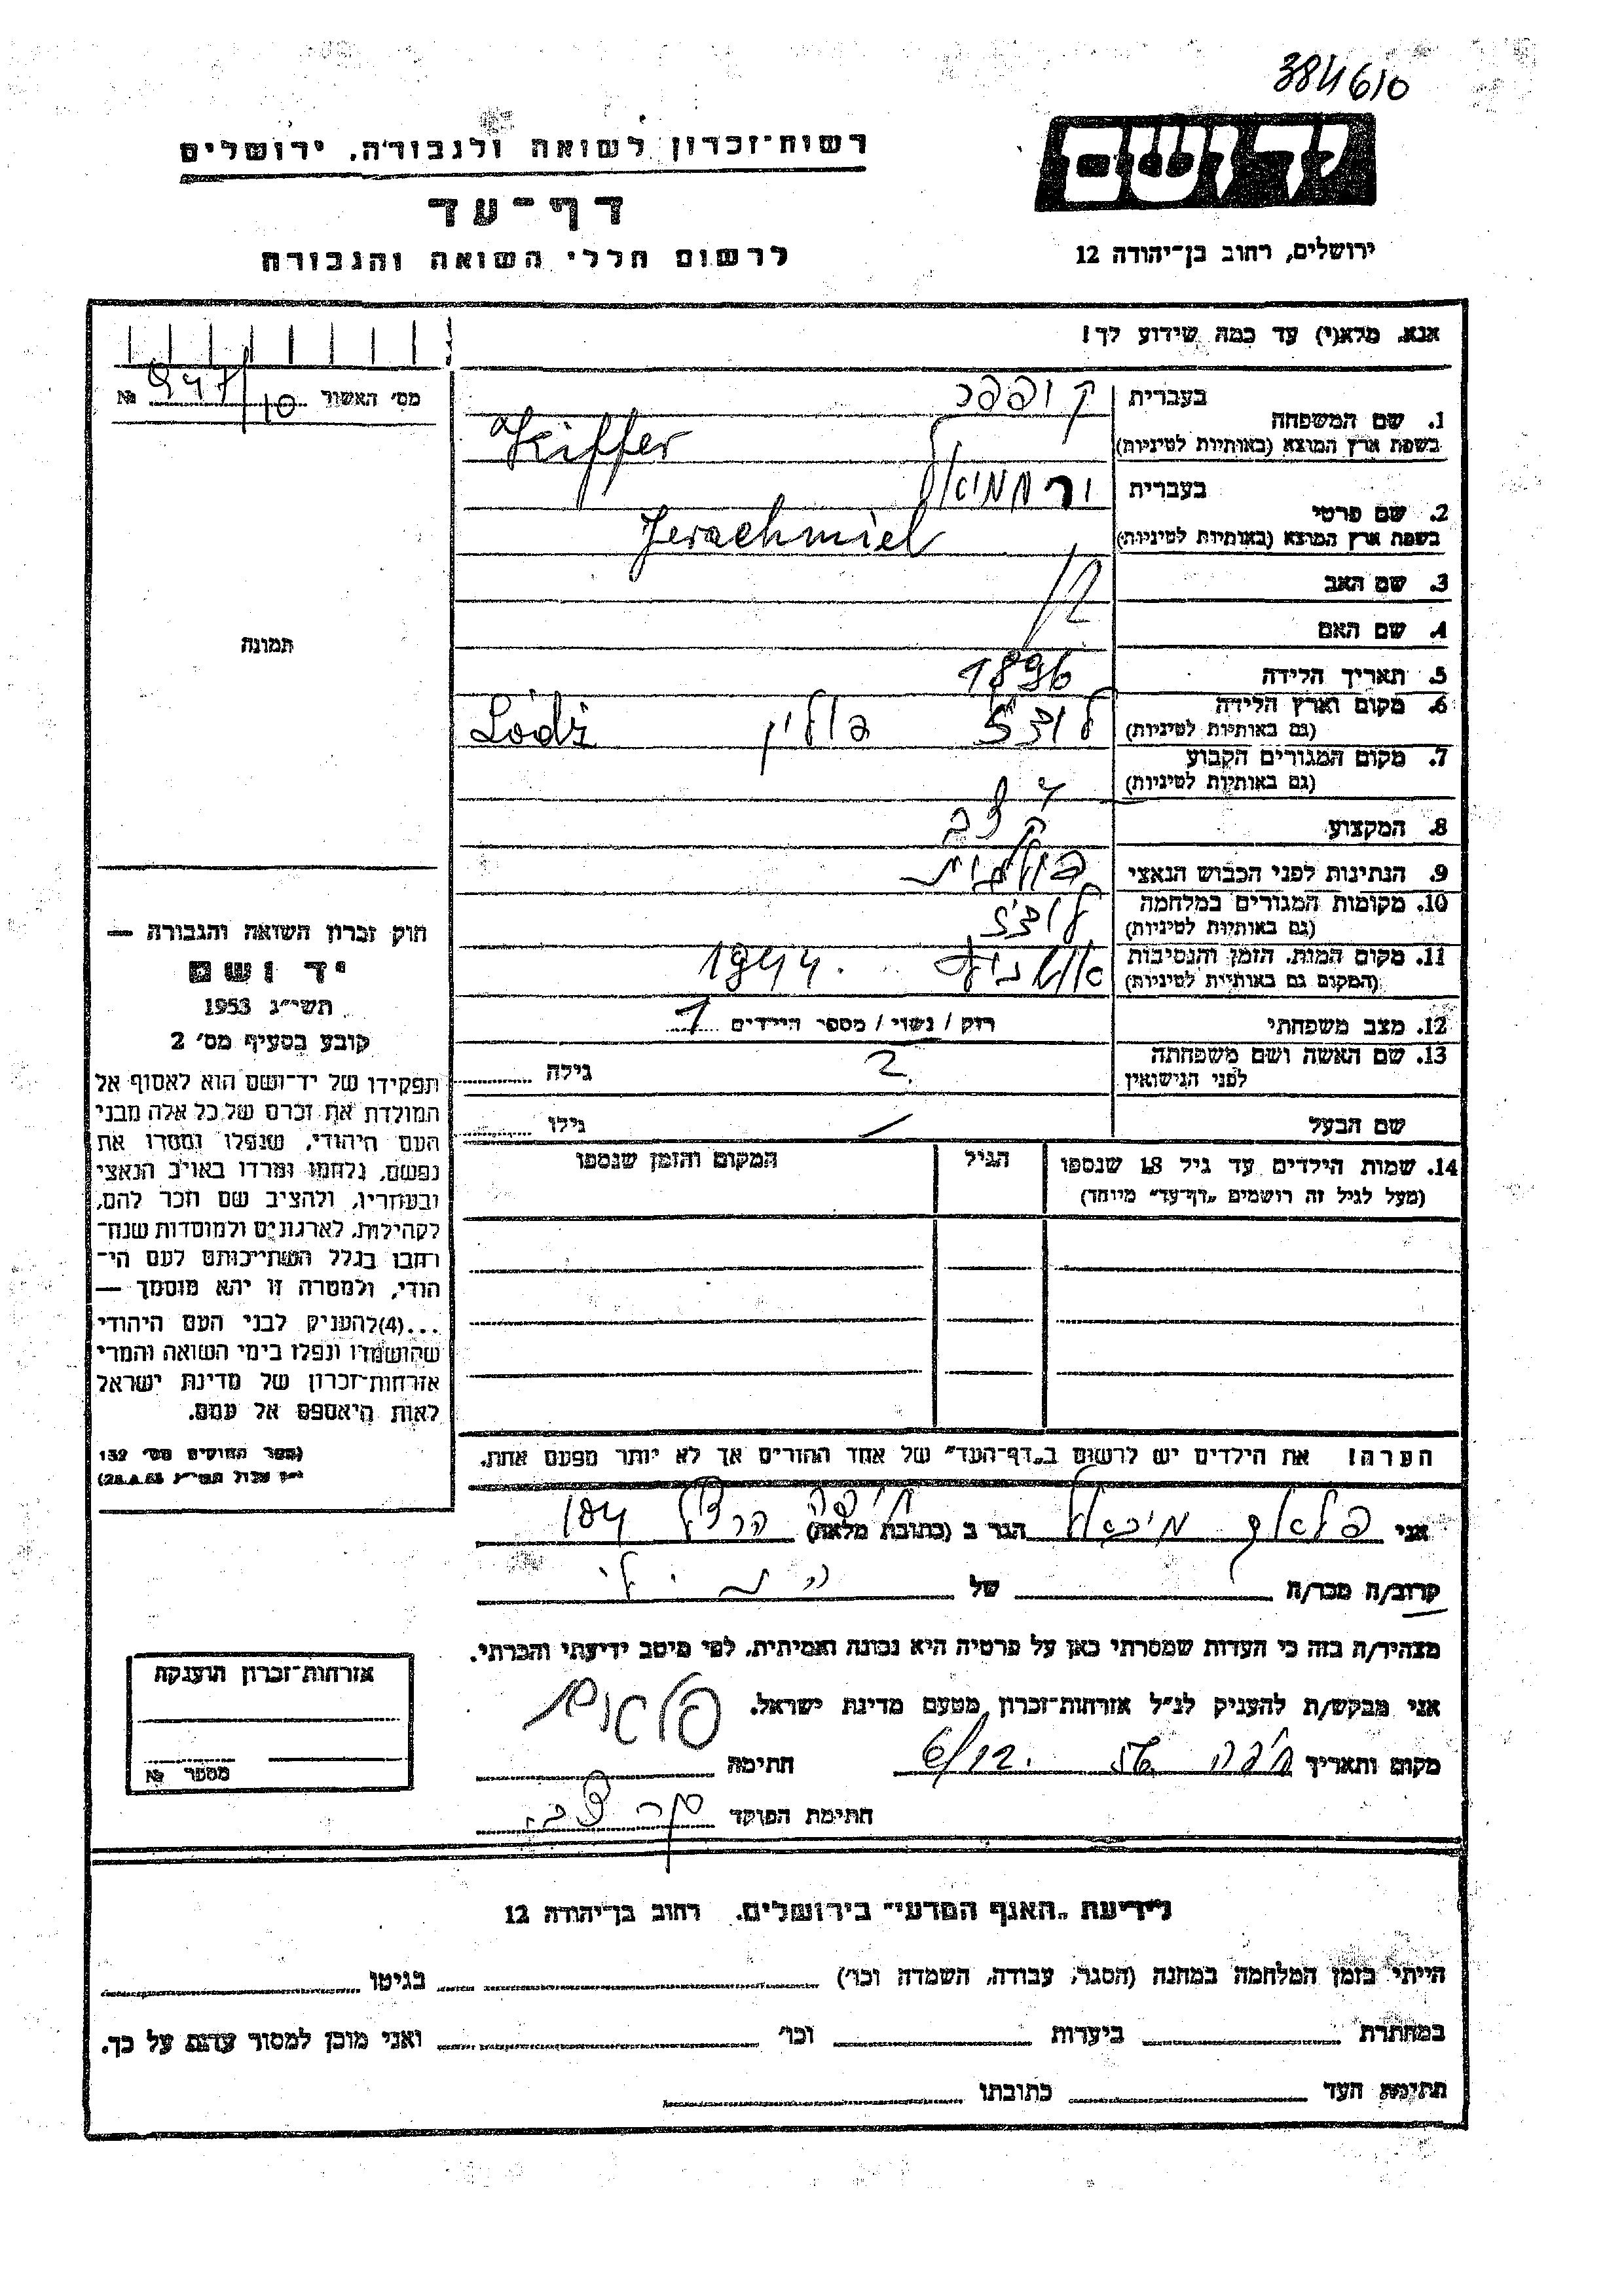 384610
יד ושם
רשות-זכרון לשואה ולגבורה, ירושלים
דף-עד
לרשום חללי השואה והגבורה
ירושלים, רחוב בן-יהודה 12
אנא, מלא(י) עד כמה שידוע לך!
מס' האשור 947/10 №
1. שם המשפחה
בעברית קופפר
בשפת ארץ המוצא (באותיות לטיניות) Kiffer
2. שם פרטי
בעברית ירחמיאל
בשפת ארץ המוצא (באותיות לטיניות) Jerachmiel
3. שם האב
4. שם האם
5. תאריך הלידה 1896
6. מקום וארץ הלידה לודז' פולין Lodż
(גם באותיות לטיניות)
7. מקום המגורים הקבוע
(גם באותיות לטיניות)
8. המקצוע
9. הנתינות לפני הכבוש הנאצי פולנית
10. מקומות המגורים במלחמה לודז'
(גם באותיות לטיניות)
11. מקום המות, הזמן והנסיבות אושביץ 1944.
(המקום גם באותיות לטיניות)
12. מצב משפחתי רוק / נשוי / מספר הילדים 1
13. שם האשה ושם משפחתה
לפני הנישואין
גילה
שם הבעל
גילו
14. שמות הילדים עד גיל 18 שנספו
(מעל לגיל זה רושמים „דף-עד" מיוחד)
הגיל
המקום והזמן שנספו
תמונה
חוק זכרון השואה והגבורה —
יד ושם
תשי"ג 1953
קובע בסעיף מס' 2
תפקידו של יד-ושם הוא לאסוף אל
המולדת את זכרם של כל אלה מבני
העם היהודי, שנפלו ומסרו את
נפשם, נלחמו ומרדו באויב הנאצי
ובעוזריו, ולהציב שם וזכר להם,
לקהילות, לארגונים ולמוסדות שנח-
רחבו בגלל השתייכותם לעם הי-
הודי, ולמטרה זו יהא מוסמך —
...(4)להעניק לבני העם היהודי
שהושמדו ונפלו בימי השואה והמרי
אזרחות-זכרון של מדינת ישראל
לאות היאספם אל עמם.
(ספר החוקים מס' 132
הערה! את הילדים יש לרשום ב„דף-העד" של אחד ההורים אך לא יותר מפעם אחת.
אני מיכאל הגר ב (כתובת מלאה) חיפה הרצל 104
קרוב/ה מכר/ה של
מצהיר/ה בזה כי העדות שמסרתי כאן על פרטיה היא נכונה ואמיתית, לפי מיטב ידיעתי והכרתי.
אני מבקש/ת להעניק לנ"ל אזרחות-זכרון מטעם מדינת ישראל.
מקום ותאריך חיפה 6/12.
חתימה
חתימת הפוקד
אזרחות-זכרון הוענקה
מספר №
לידיעת „האגף המדעי" בירושלים, רחוב בן-יהודה 12
הייתי בזמן המלחמה במחנה (הסגר, עבודה, השמדה וכו') בגיטו
במחתרת ביערות וכו' ואני מוכן למסור עדות על כך.
חתימת העד כתובתו